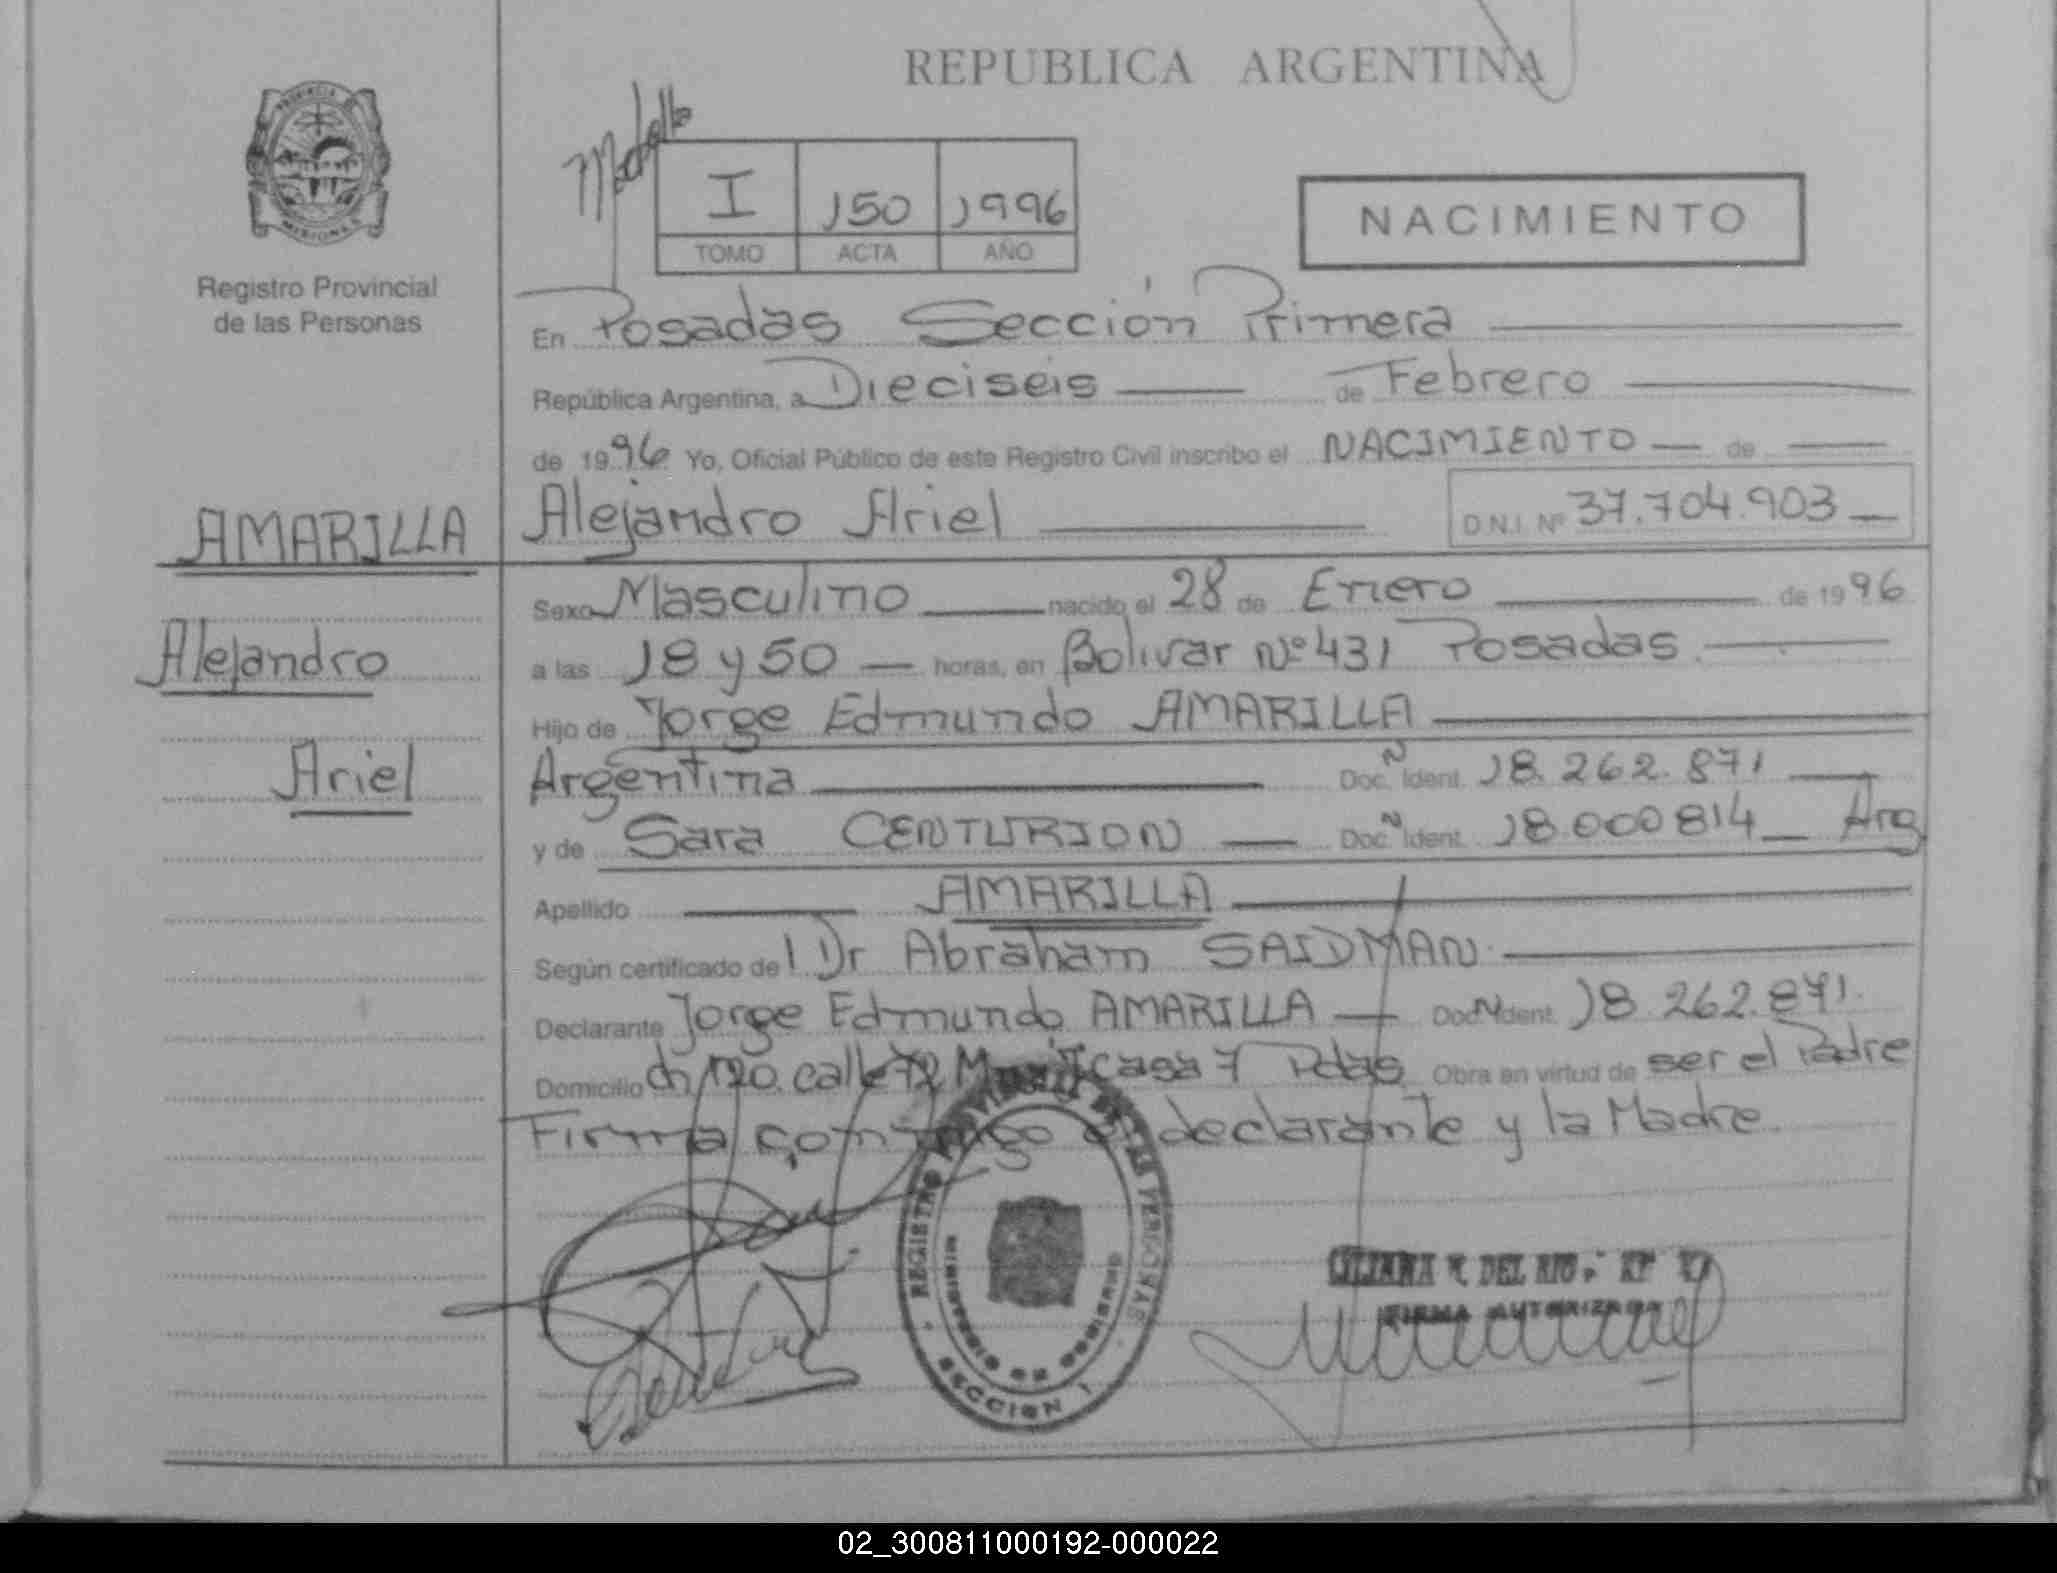 REPUBLICA ARGENTINA
PROVINCIA DE
MISIONES
Registro Provincial
de las Personas
I 150 1996
TOMO ACTA AÑO
NACIMIENTO
En Posadas Sección Primera
República Argentina, a Dieciseis de Febrero
de 1996 Yo, Oficial Público de este Registro Civil inscribo el NACIMIENTO de
AMARILLA
Alejandro Ariel D.N.I. Nº 37.704.903
Sexo Masculino nacido el 28 de Enero de 1996
Alejandro
a las 18 y 50 horas, en Bolivar Nº 431 Posadas
Hijo de Jorge Edmundo AMARILLA
Ariel
Argentina Doc. N Ident. 18.262.871
y de Sara CENTURION Doc. N Ident. 18.000814 Arg
Apellido AMARILLA
Según certificado del Dr Abraham SAIDMAN
Declarante Jorge Edmundo AMARILLA Doc. N Ident. 18.262.871.
Domicilio ch 120 calle 72 casa 7 Pdas Obra en virtud de ser el Padre
Firma conmigo el declarante y la Madre.
REGISTRO PROVINCIAL DE LAS PERSONAS
MINISTERIO DE GOBIERNO
SECCION 1
DEL RIO
FIRMA AUTORIZADA
02_300811000192-000022